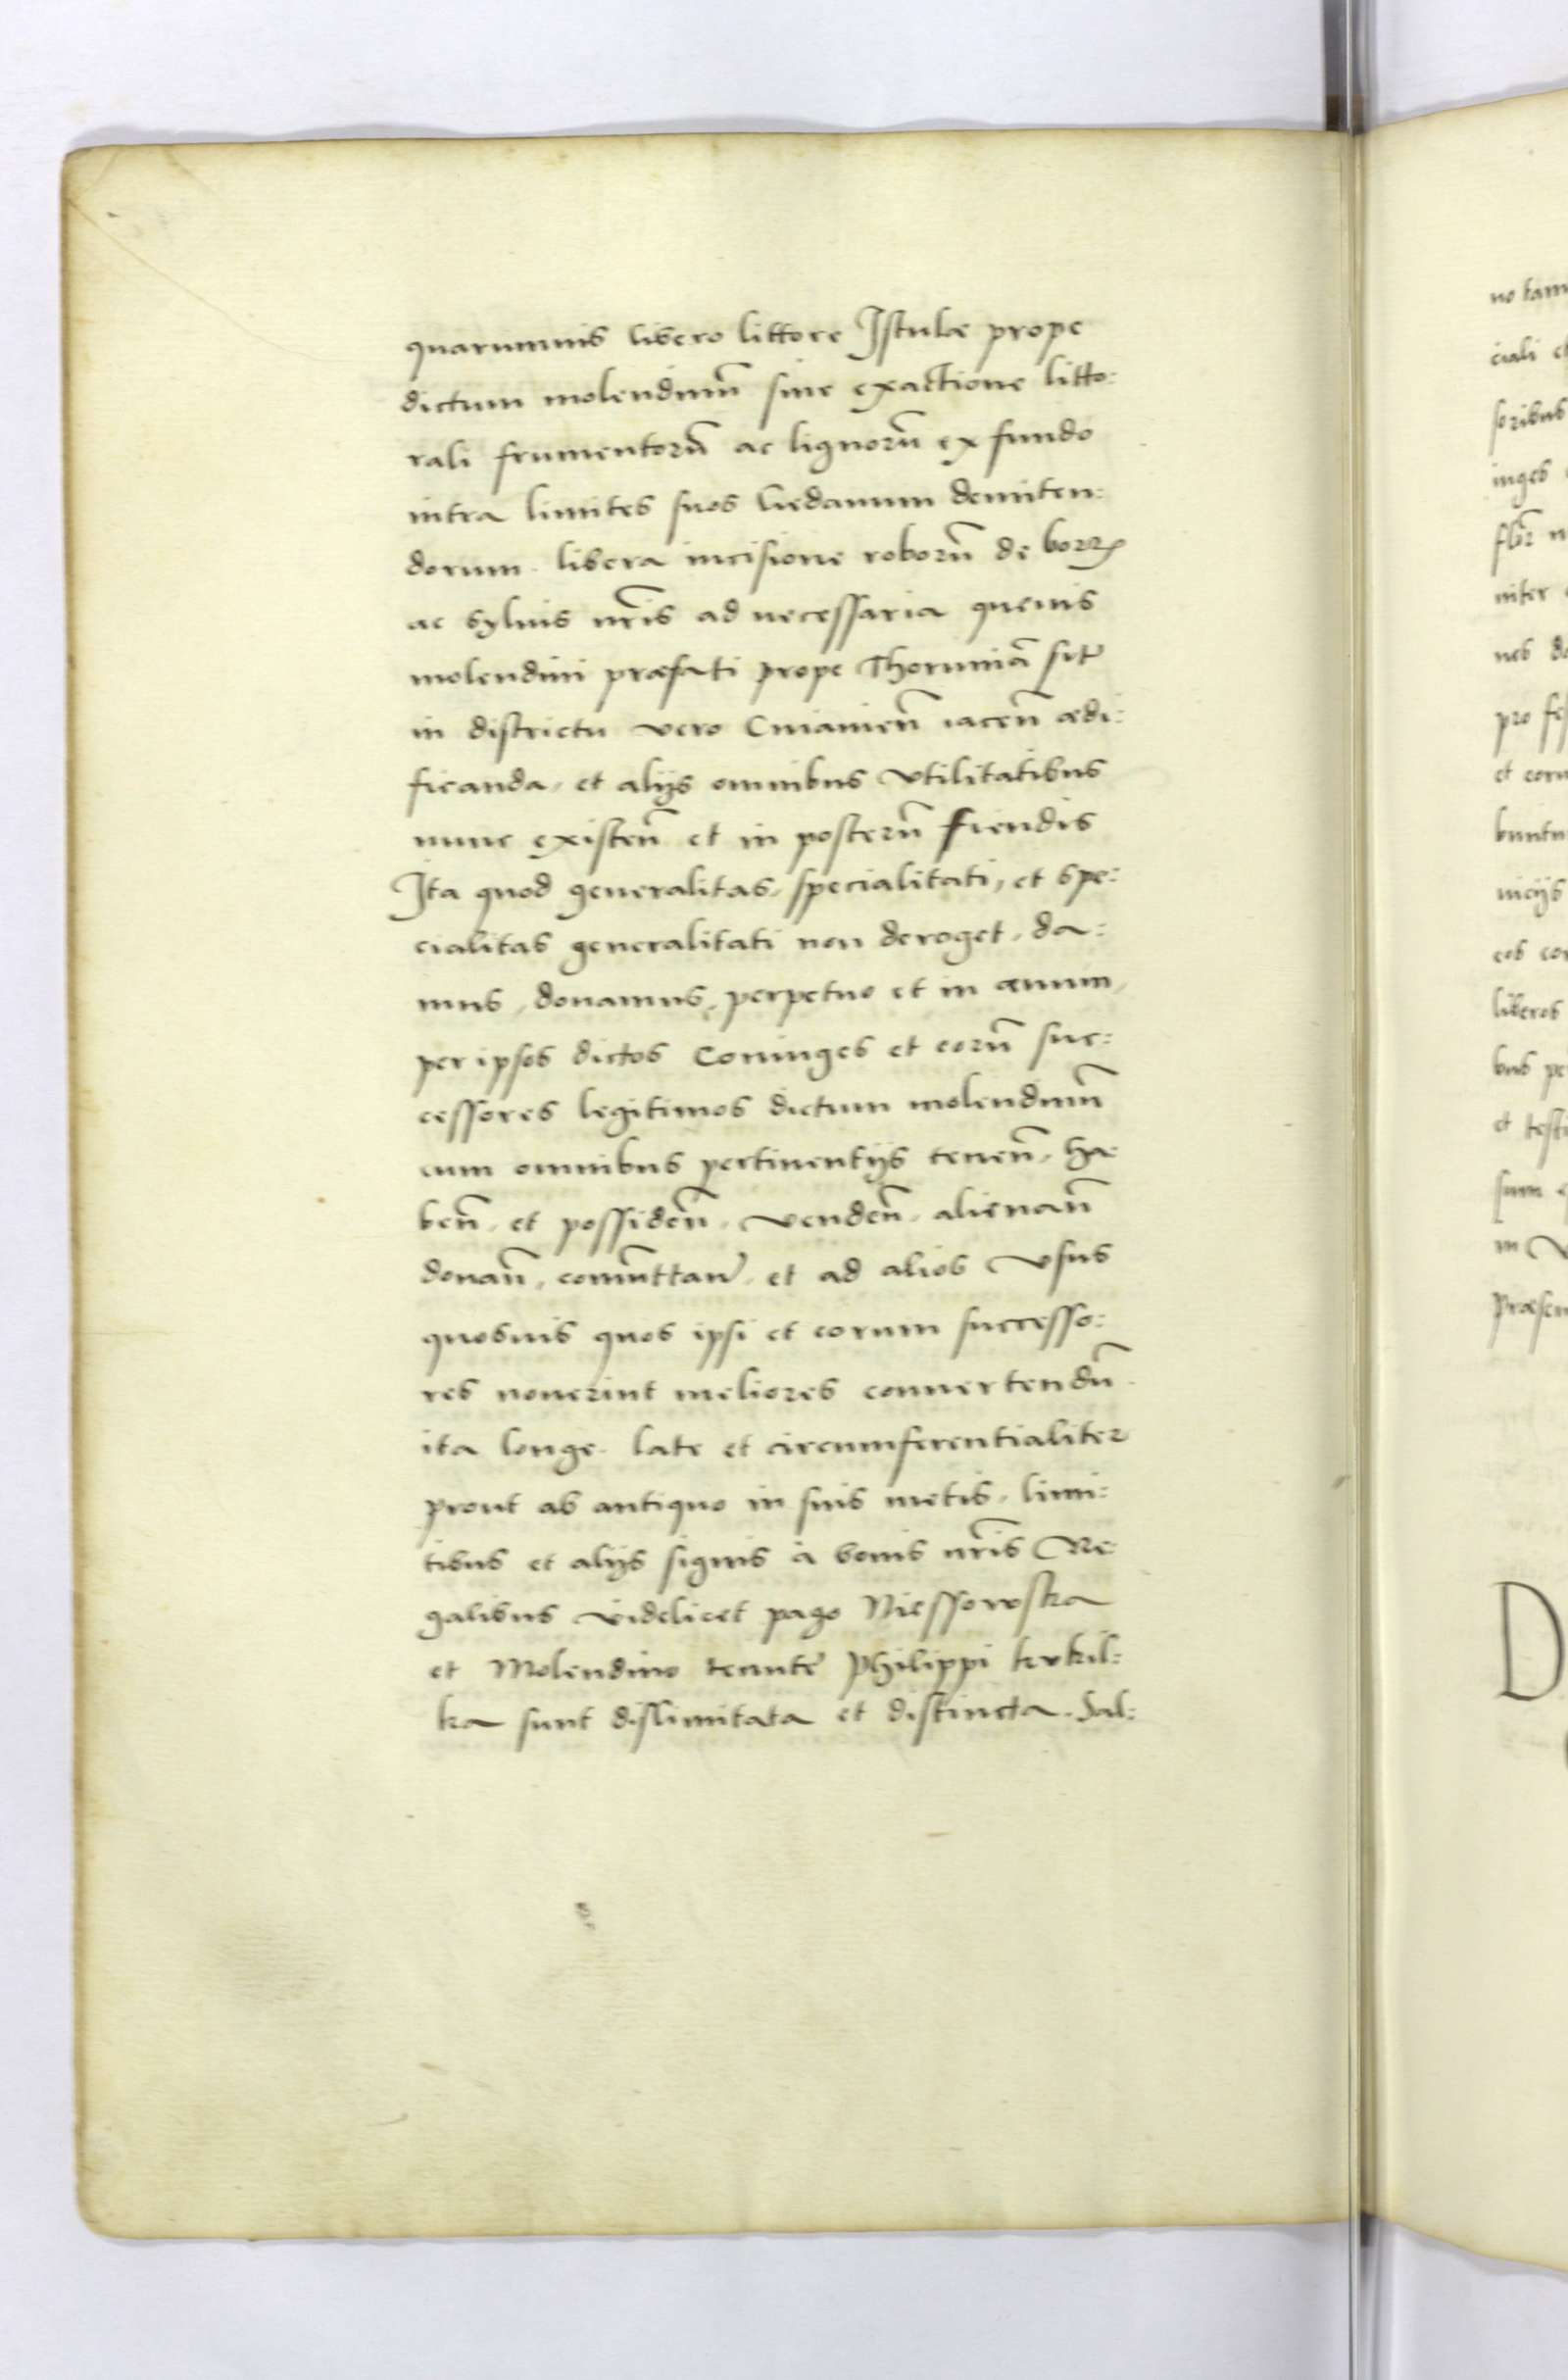 quarumuis libero littore Istulæ prope
dictum molendinũ siue exactione litto:
rali frumentorũ ac lignorũ ex fundo
intra limites suos hedamum demiten:
dorum. libera incisione roborũ de borr̃
ac syluis nr̃is ad necessaria queuis
molendini præfati prope Thoruniã sit̃
in districtu vero Cuiauien̄ iacen̄ ædi:
ficanda, et alijs omnibus vtilitatibus
nunc existen̄ et in posterũ fiendis
Ita quod generalitas, specialitati, et spe:
cialitas generalitati non deroget, da:
mus, donamus, perpetuo et in æuum,
per ipsos dictos Coninges et eorũ suc:
cessores legitimos dictum molendinũ
cum omnibus pertinentijs tenen̄, ha
ben̄, et possiden̄, venden̄, alienan̄
donan̄, com̃uttan̄, et ad alios vsus
quosuis quos ipsi et eorum successo:
res nouerint meliores conuertendũ.
ita longe, late et circumferentialiter
prout ab antiquo in suis metis, limi:
tibus et alijs signis à bonis nr̃is Re
galibus videlicet pago Niessowska
et Molendino tenute Philippi kukil:
ka sunt dislimitata et distincta. Sal:
no tam
ciali et
soribus
inges
flor̃
niter
nes
pro
et
buntu
uicijs
eos
liberos
bus
et
sum
in
Præsen
D